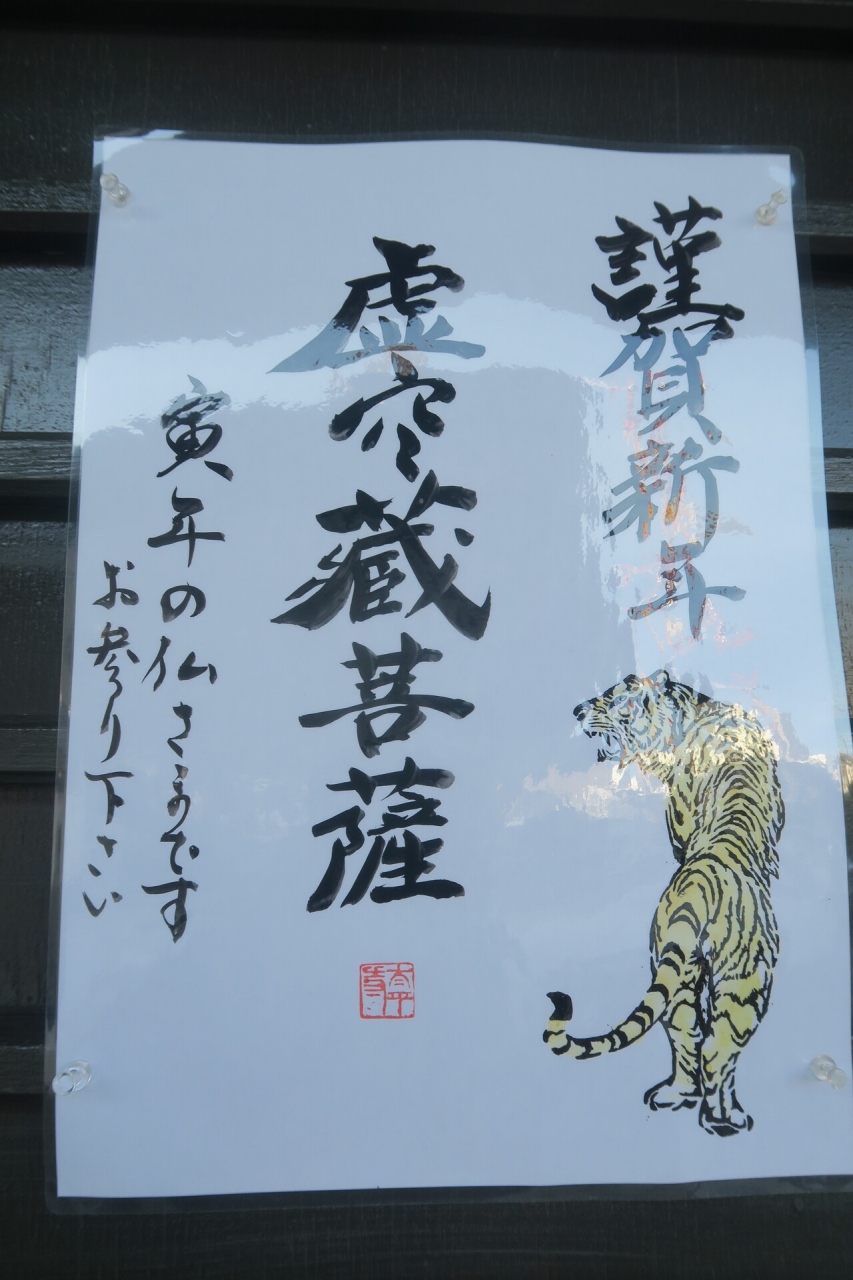 謹賀新年
虚空藏菩薩
寅年の仏さまです
お参り下さい